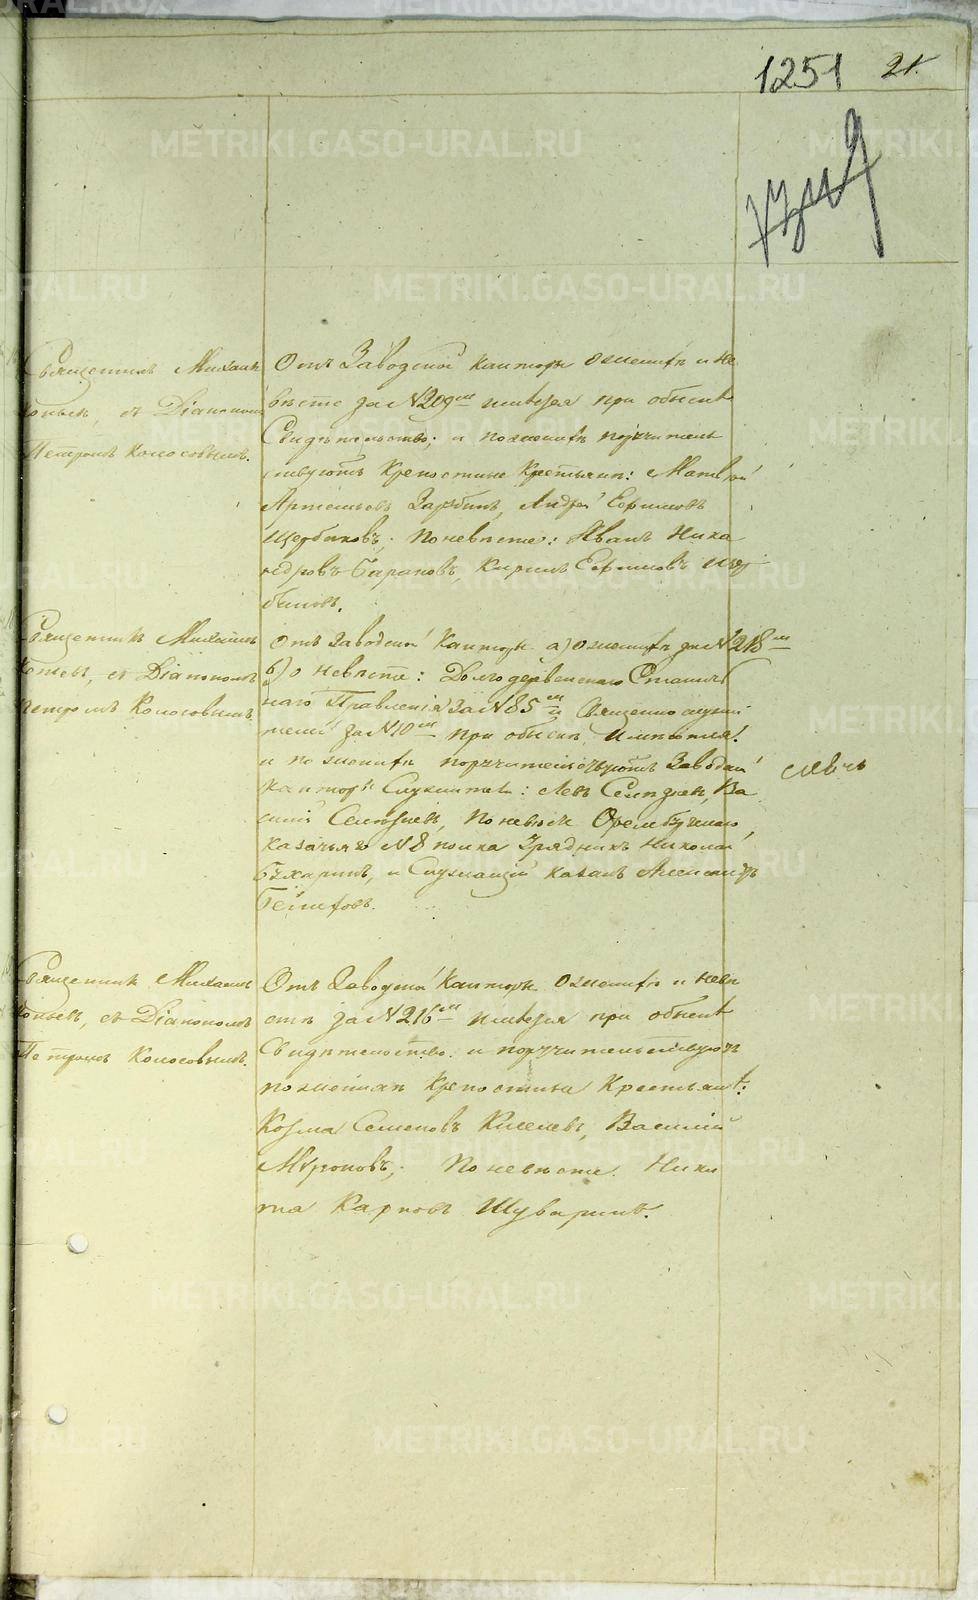 1251 21.
Священникъ Михаилъ
Попьевъ, съ Діакономъ
Петромъ Колосовымъ.
Отъ Заводской Канторы о женихѣ и не
вѣстѣ за №209мъ имѣется при обыскѣ
Свидѣтельство; и по женихѣ поручитель
ствуютъ Крепостные Крестьяне: Матвѣй
Артемьевъ Зарубинъ, Андрей Ефимовъ
Щербаковъ; По невѣсте: Иванъ Ника
норовъ Барановъ, Кирилъ Ефимовъ
Священникъ Михаилъ
съ Діакономъ
Петромъ Колосовымъ.
Отъ Заводской Канторы а) о женихѣ за №218мъ
б) о невѣсте: Долгодеревенскаго Станич
наго Правленія за №85мъ и Священнослужи
теля за №10мъ при обыскѣ имѣются.
и по женихѣ поручительствуютъ Заводской
Канторы Служители: Левъ Селиверстовъ, Ва
силій по невѣсте Оренбургскаго
казачьяго №8 полка Урядникъ Николай
Бухаринъ, и Служащій казакъ Александръ
Священникъ Михаилъ
съ Діакономъ
Петромъ Колосовымъ.
Отъ Заводской Канторы о женихѣ и невѣ
стѣ за №216мъ имѣется при обыскѣ
Свидѣтельство. и поручительствуютъ
по женихѣ Крепостные Крестьяне:
Козма Семеновъ Киселевъ, Василій
Мироновъ; По невѣсте. Ники
та Карповъ Шуваринъ.
METRIKI.GASO-URAL.RU